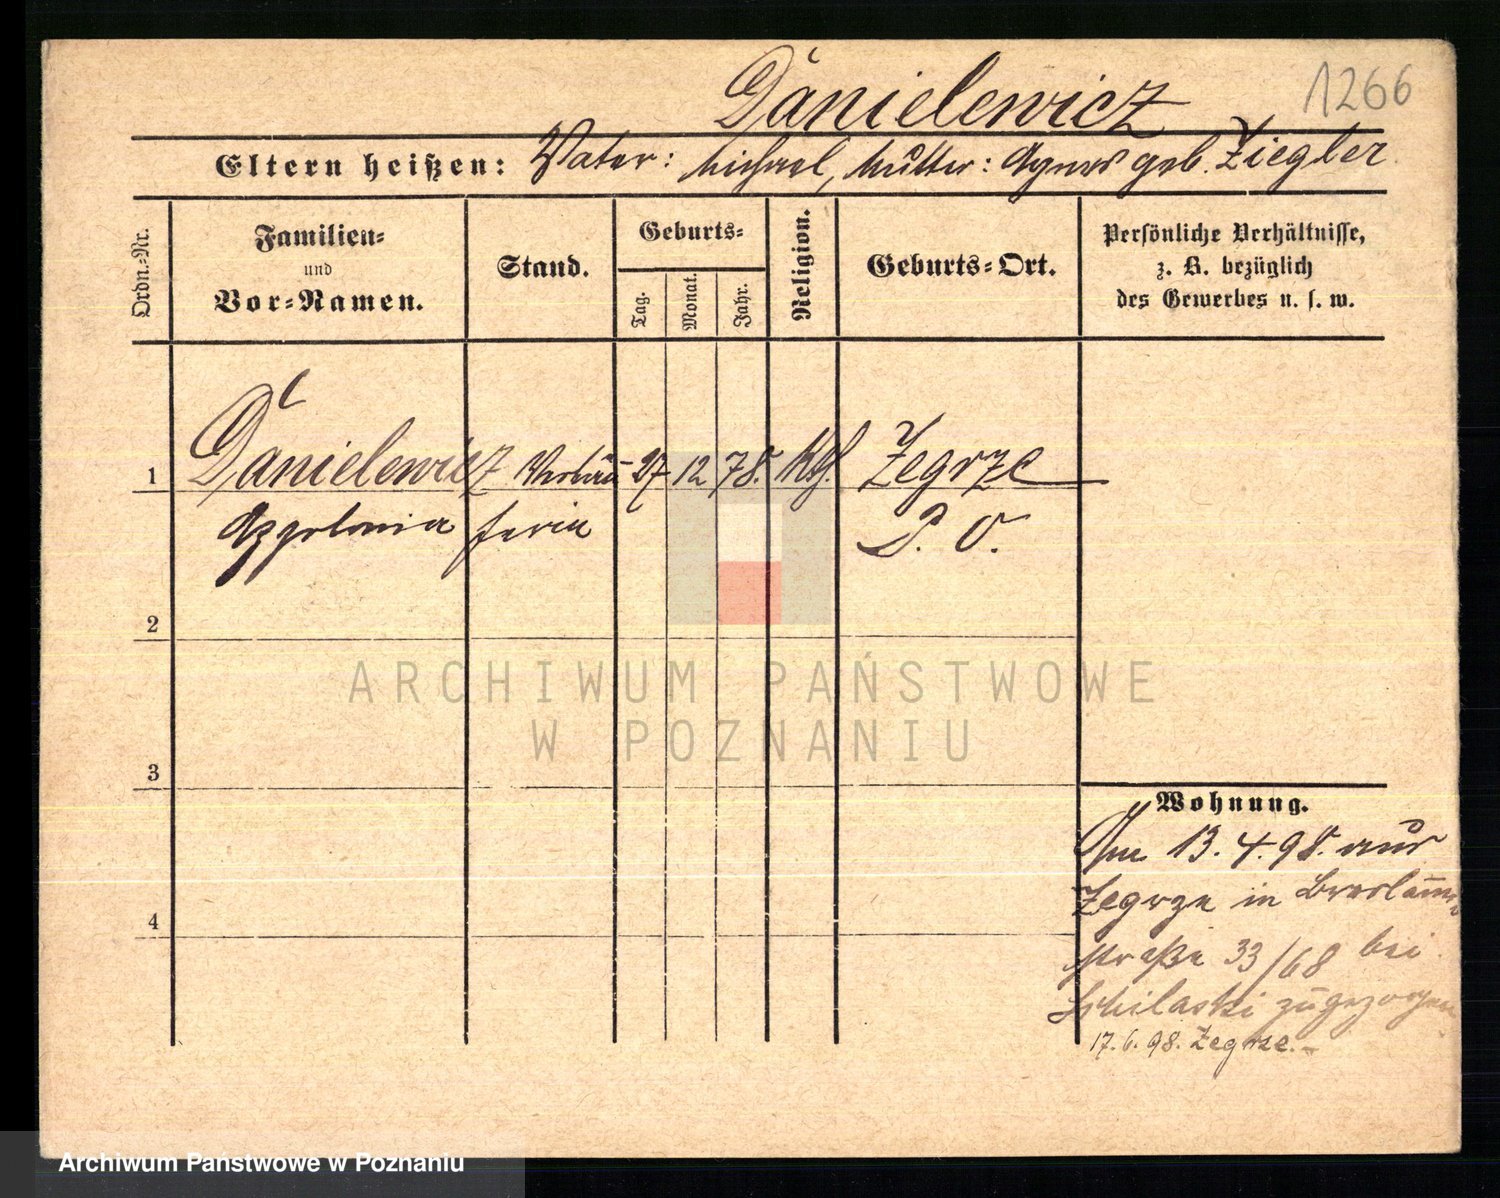 1266
Danielewicz
Eltern heißen: Vater: Michael, Mutter: Agnes geb. Ziegler
Ordn.-Nr.
Familien-
und
Vor-Namen.
Stand.
Geburts-
Tag.
Monat.
Jahr.
Religion.
Geburts-Ort.
Persönliche Verhältnisse,
z. B. bezüglich
des Gewerbes u. s. w.
1 Danielewicz Verkäu- 27 12 78. kth. Zegrze
Appolonia ferin P. O.
2
3
4
ARCHIWUM PAŃSTWOWE
W POZNANIU
Wohnung.
Am 13.4.98. aus
Zegrze in Breslauer-
straße 33/68 bei
zugezogen
17.6.98. Zegrze.-
Archiwum Państwowe w Poznaniu